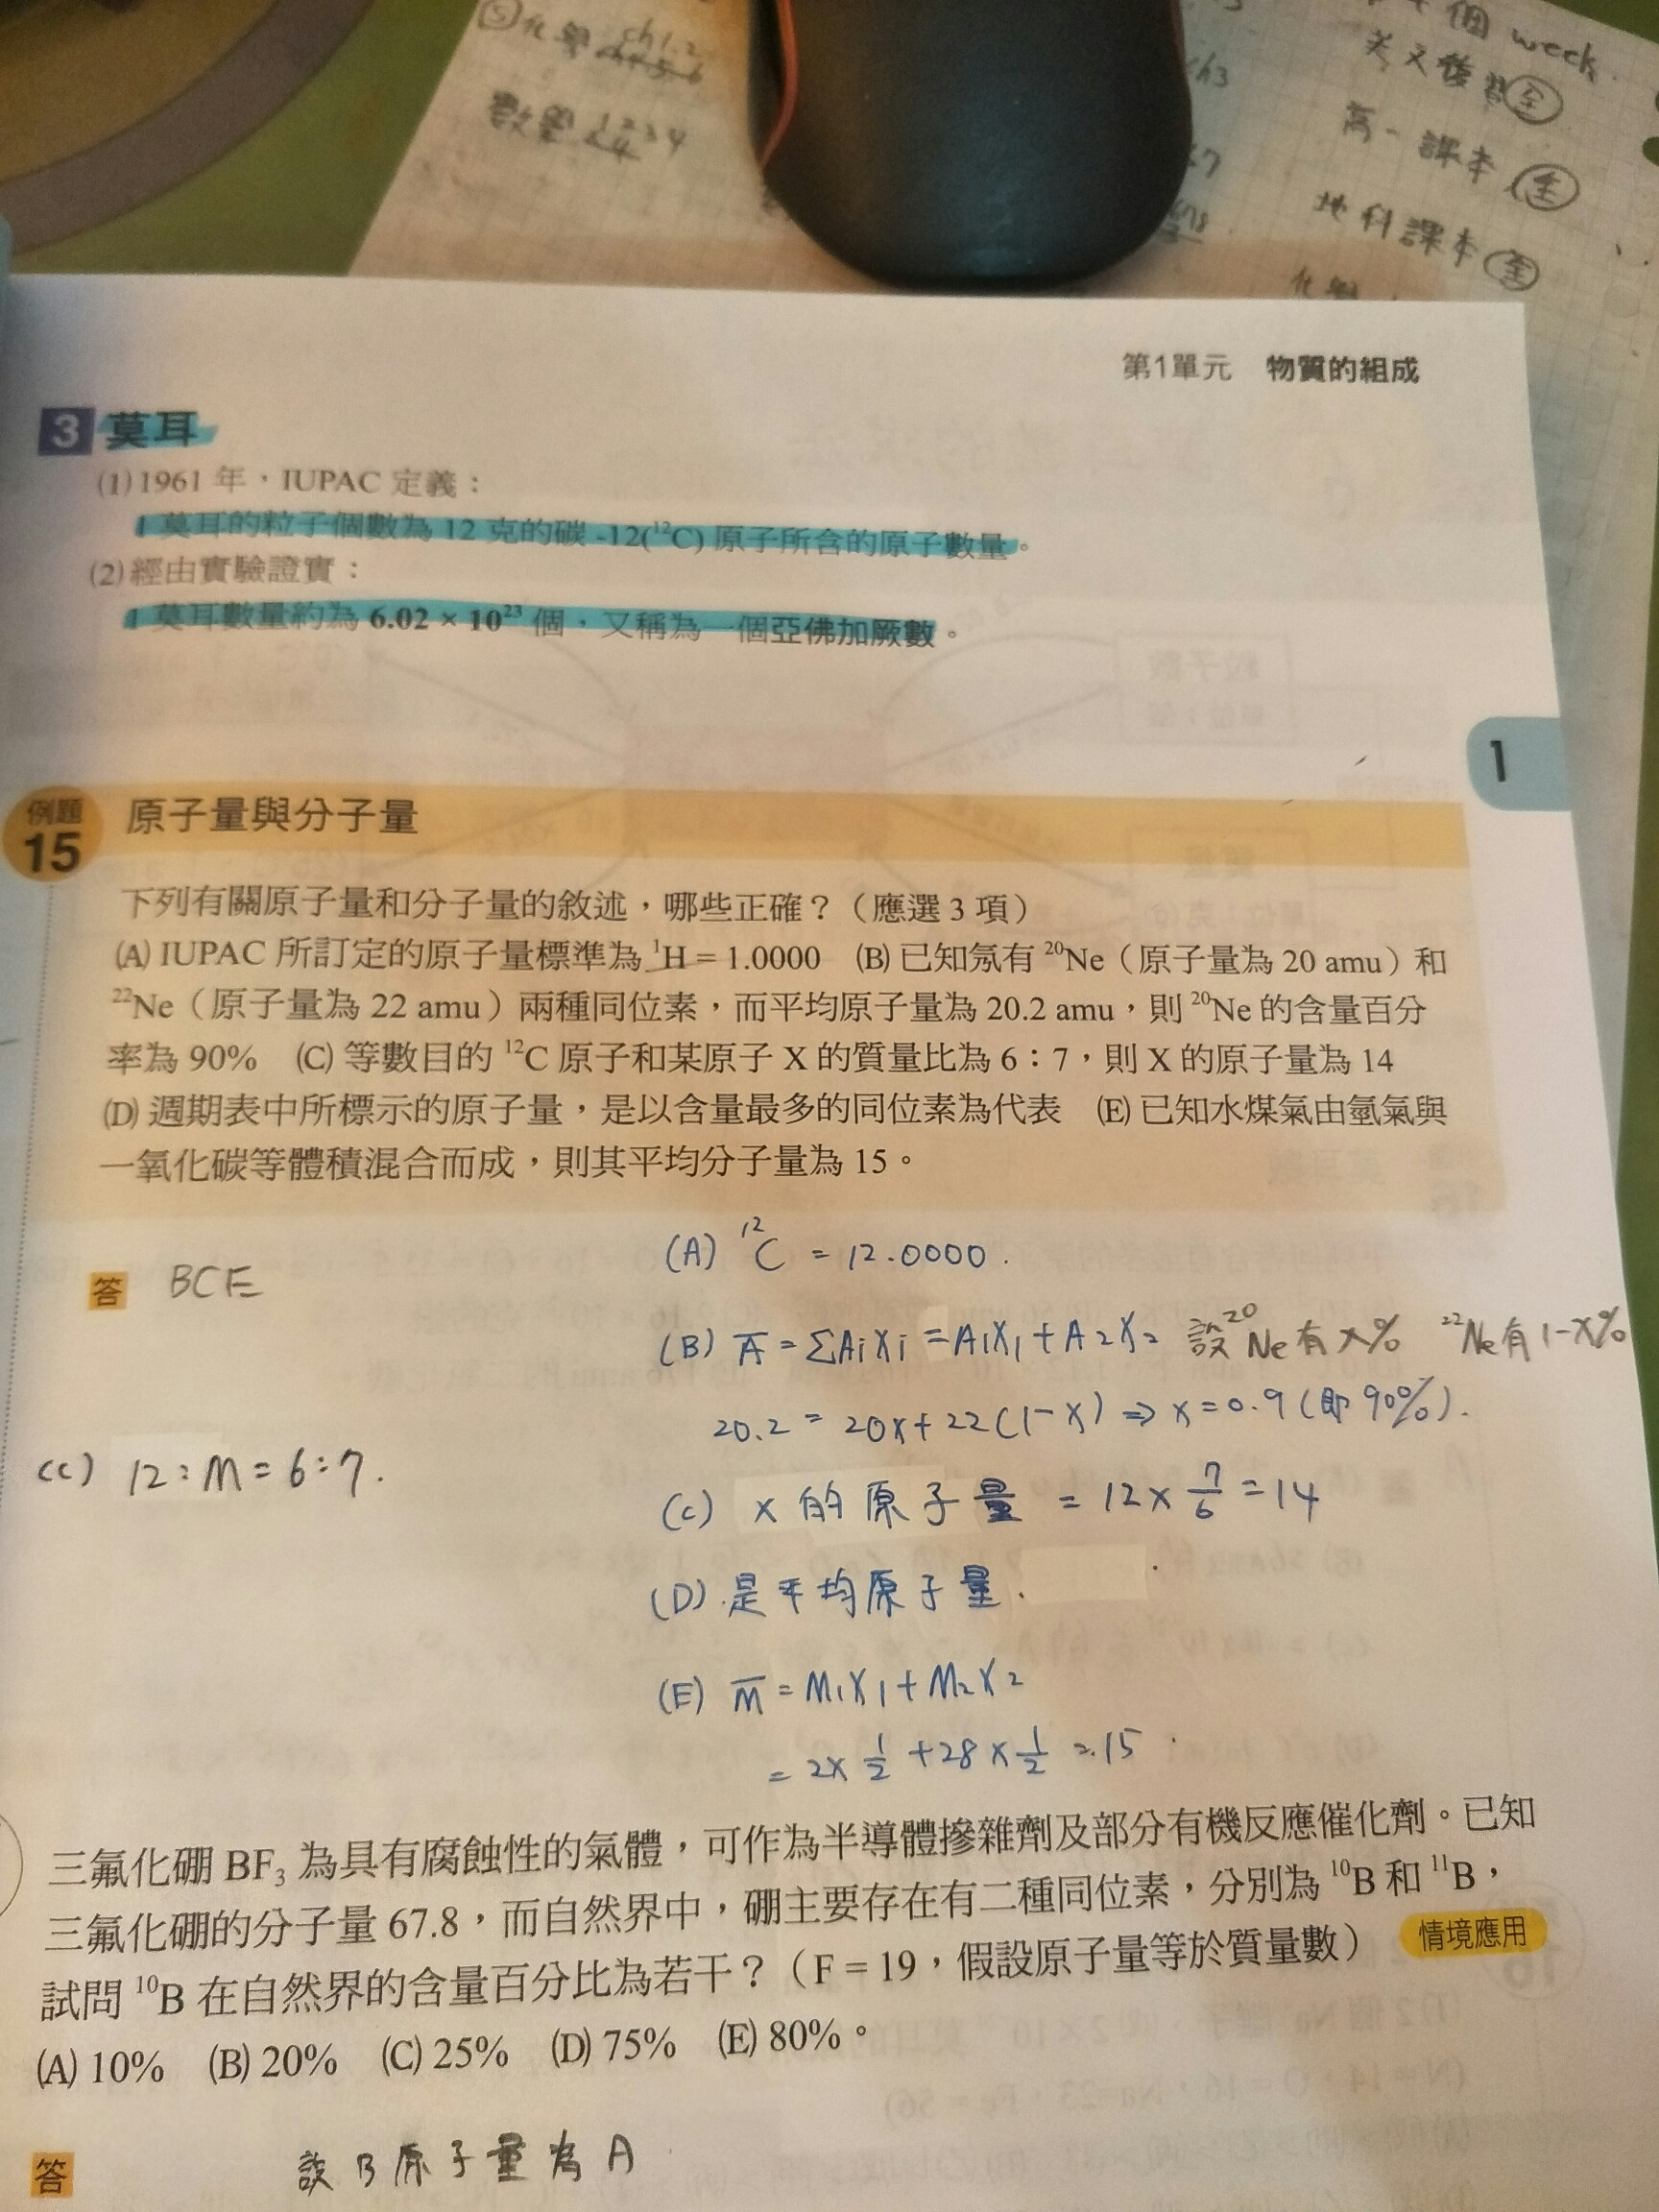 ⑤化學 ch1.2
數學 1234
week
英文複習全
高一課本全
地科課本全
第1單元 物質的組成
3 莫耳
(1)1961 年，IUPAC 定義：
1 莫耳的粒子個數為 12 克的碳 -12(¹²C) 原子所含的原子數量。
(2)經由實驗證實：
1 莫耳數量約為 6.02 × 10²³ 個，又稱為一個亞佛加厥數。
1
例題 15 原子量與分子量
下列有關原子量和分子量的敘述，哪些正確？（應選 3 項）
(A) IUPAC 所訂定的原子量標準為 ¹H = 1.0000 (B) 已知氖有 ²⁰Ne（原子量為 20 amu）和
²²Ne（原子量為 22 amu）兩種同位素，而平均原子量為 20.2 amu，則 ²⁰Ne 的含量百分
率為 90% (C) 等數目的 ¹²C 原子和某原子 X 的質量比為 6：7，則 X 的原子量為 14
(D) 週期表中所標示的原子量，是以含量最多的同位素為代表 (E) 已知水煤氣由氫氣與
一氧化碳等體積混合而成，則其平均分子量為 15。
(A) ¹²C = 12.0000.
答 BCE
(B) A̅ = ΣAiXi = A1X1 + A2X2 設²⁰Ne有x% ²²Ne有1-x%
20.2 = 20x + 22(1-x) ⇒ x = 0.9 (即90%).
(C) 12:M = 6:7.
(C) x 的原子量 = 12 × 7/6 = 14
(D) 是平均原子量.
(E) M̅ = M1X1 + M2X2
= 2× 1/2 + 28 × 1/2 = 15
三氟化硼 BF₃ 為具有腐蝕性的氣體，可作為半導體摻雜劑及部分有機反應催化劑。已知
三氟化硼的分子量 67.8，而自然界中，硼主要存在有二種同位素，分別為 ¹⁰B 和 ¹¹B，
試問 ¹⁰B 在自然界的含量百分比為若干？（F = 19，假設原子量等於質量數） 情境應用
(A) 10% (B) 20% (C) 25% (D) 75% (E) 80%。
答 設 B 原子量為 A